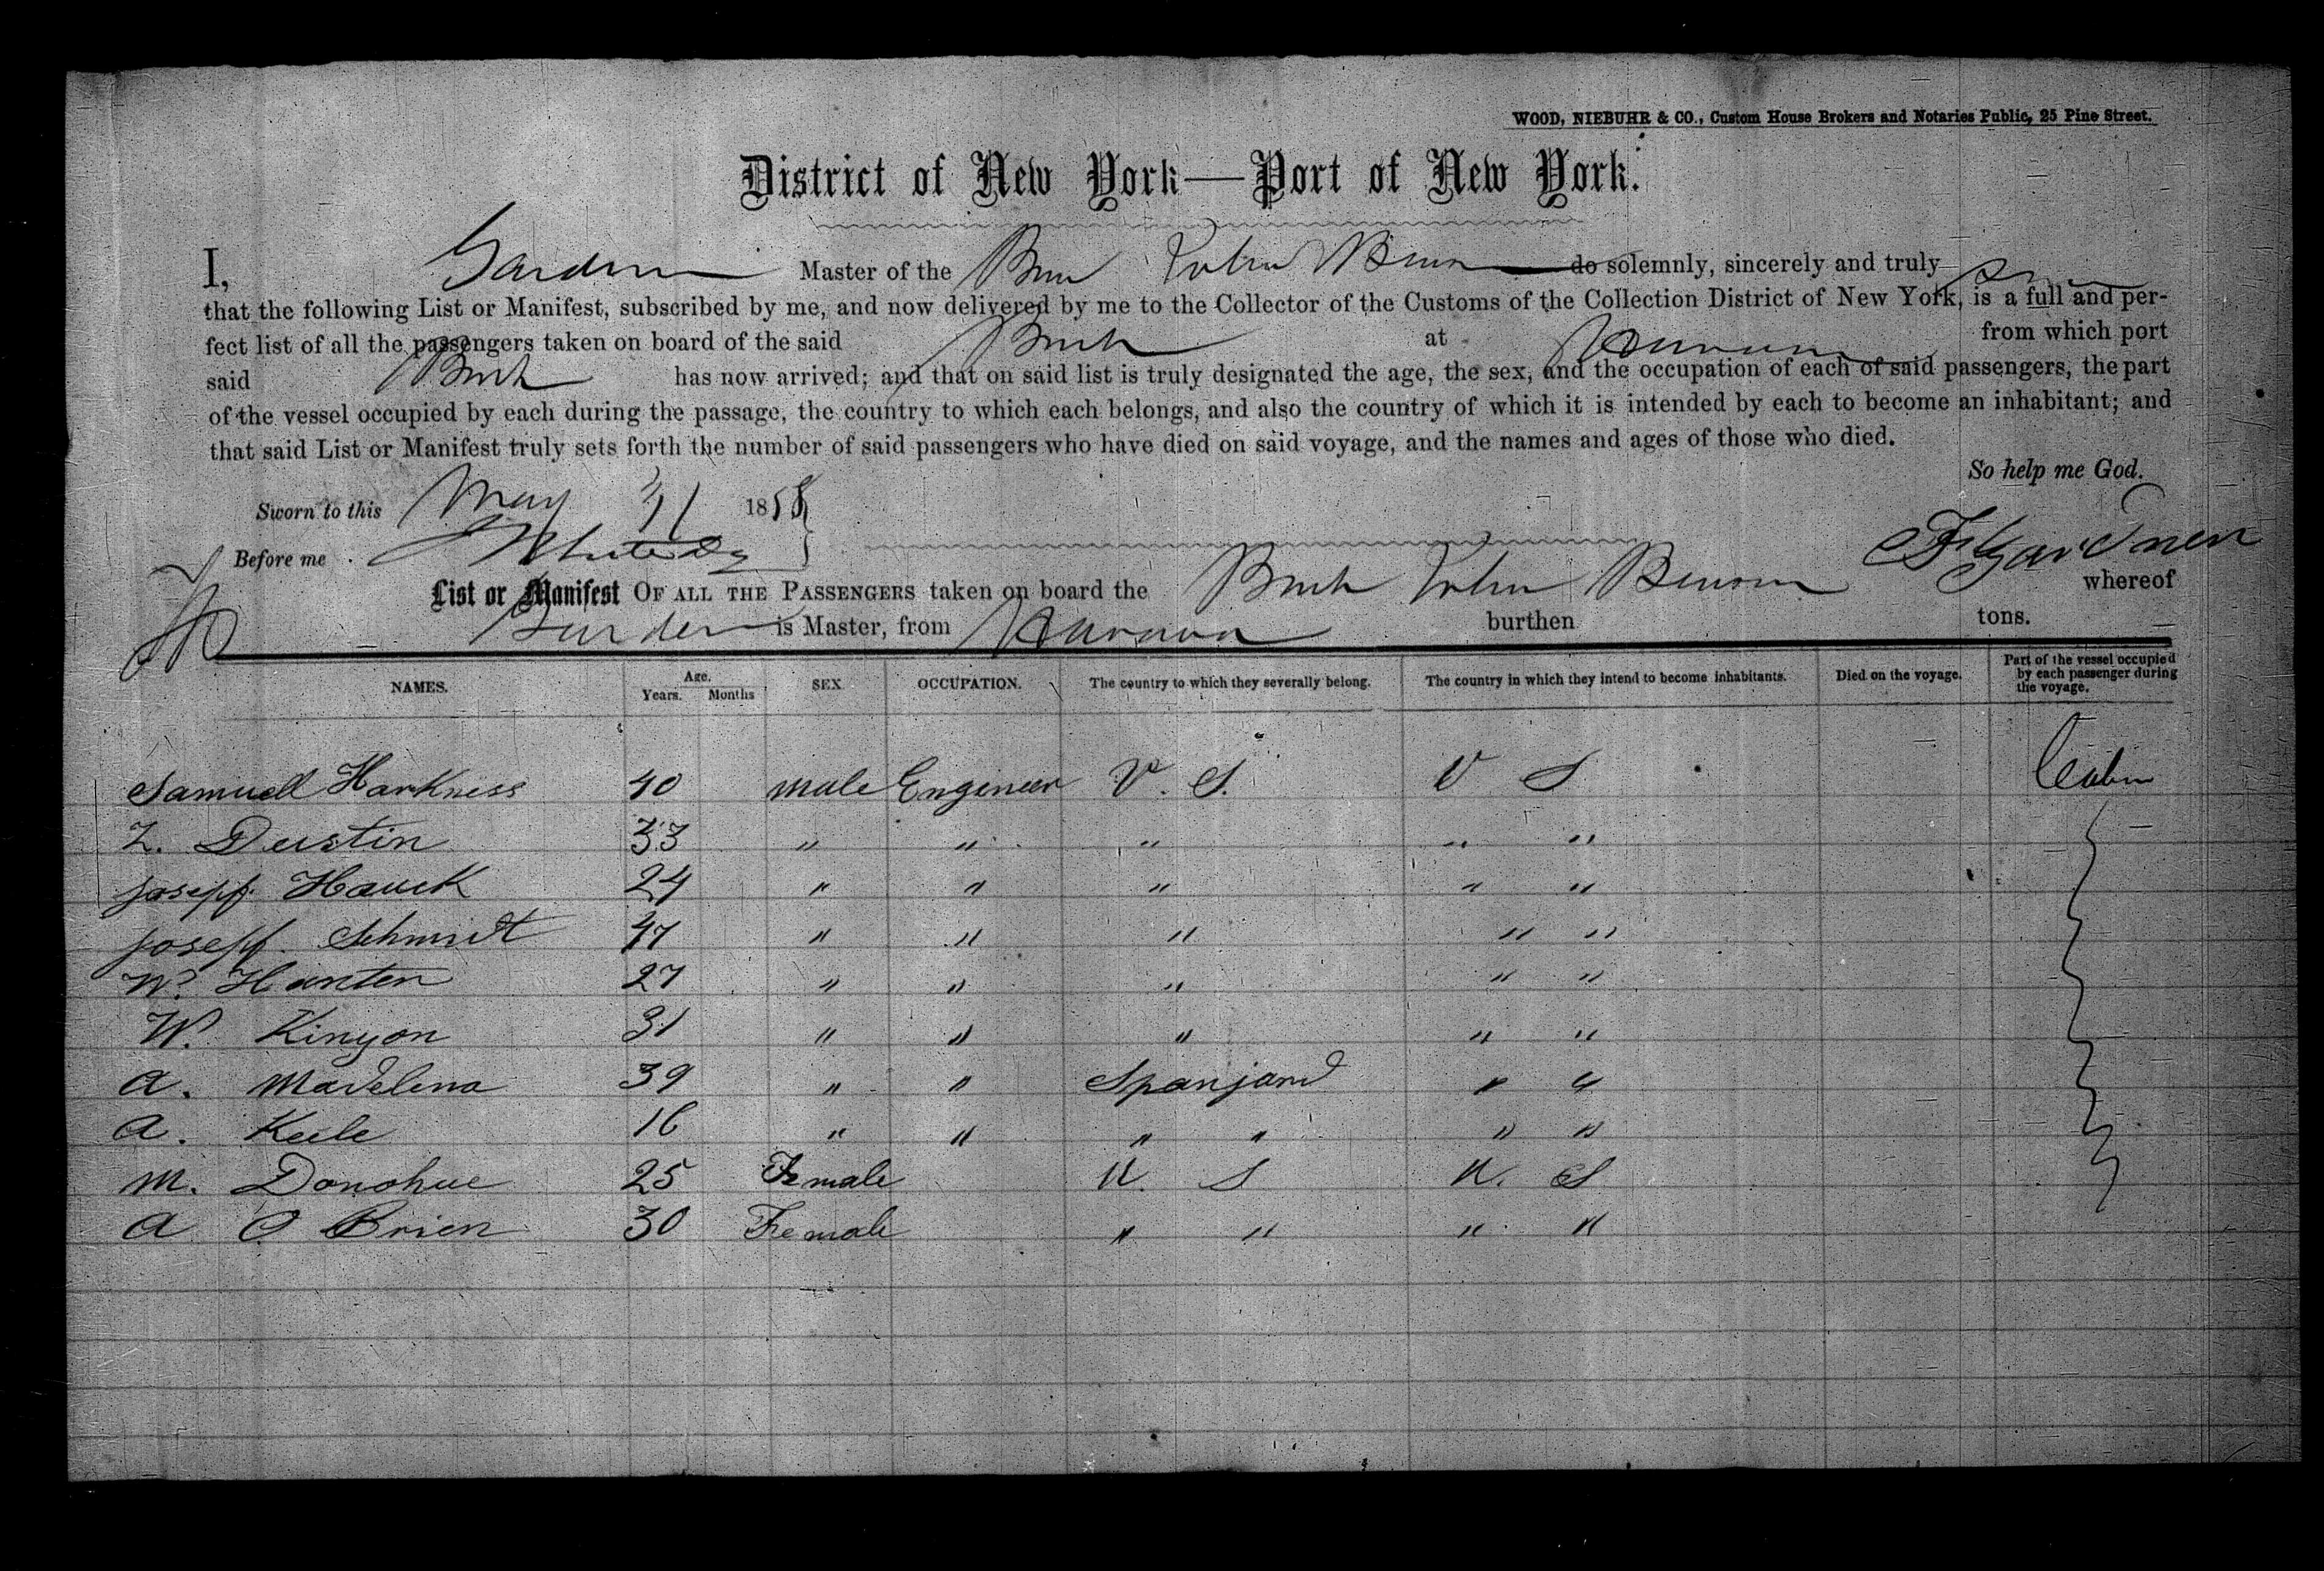 WOOD, NIEBUHR & CO., Custom House Brokers and Notaries Public, 25 Pine Street.
District of New York—Port of New York.
I, Gardner Master of the John Benson do solemnly, sincerely and truly
that the following List or Manifest, subscribed by me, and now delivered by me to the Collector of the Customs of the Collection District of New York, is a full and per-
fect list of all the passengers taken on board of the said Bark at Havana from which port
said Bark has now arrived; and that on said list is truly designated the age, the sex, and the occupation of each of said passengers, the part
of the vessel occupied by each during the passage, the country to which each belongs, and also the country of which it is intended by each to become an inhabitant; and
that said List or Manifest truly sets forth the number of said passengers who have died on said voyage, and the names and ages of those who died.
So help me God.
Sworn to this May 31 1858
Before me
F Gardner
List or Manifest OF ALL THE PASSENGERS taken on board the Bark John Benson whereof
Gardner is Master, from Havana burthen tons.
NAMES. Age. Years. Months SEX OCCUPATION. The country to which they severally belong. The country in which they intend to become inhabitants. Died on the voyage. Part of the vessel occupied by each passenger during the voyage.
Samuell Harkness 40 male Engineer U. S. U S Cabin
Z. Dustin 33 " " " " "
Josepf Hauck 24 " " " " "
Josepf Schmidt 47 " " " " "
W. Hanten 27 " " " " "
W. Kinyon 31 " " " " "
A. Madelena 39 " " Spanjard " "
A. Keele 16 " " " " " "
M. Donohue 25 Female U. S U. S
A O Brien 30 Female " " " "